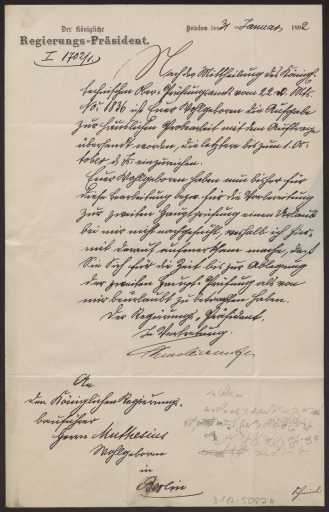 Der Königliche
Regierungs-Präsident.
Potsdam den 31 Januar 1892
I 1702/1.
Nach der Mittheilung des Königl.
technischen Ober Prüfungsamts vom 22 d. Mts.
Nr: 1836 ist Euer Wohlgeboren die Aufgabe
zur häuslichen Probearbeit mit dem Auftrage
übersandt worden, die letztere bis zum 1. Oc-
tober d. Js. einzureichen.
Euer Wohlgeboren haben nun bisher für
diese Bearbeitung bezw. für die Vorbereitung
zur zweiten Hauptprüfung einen Urlaub
bei mir nicht nachgesucht, weshalb ich hier-
mit darauf aufmerksam mache, daß
Sie Sich für die Zeit bis zur Ablegung
der zweiten Haupt-Prüfung als von
mir beurlaubt zu betrachten haben.
Der Regierungs-Präsident.
in Vertretung.
An
den Königlichen Regierungs-
bauführer
Herrn Muthesius
Wohlgeboren
in
Berlin